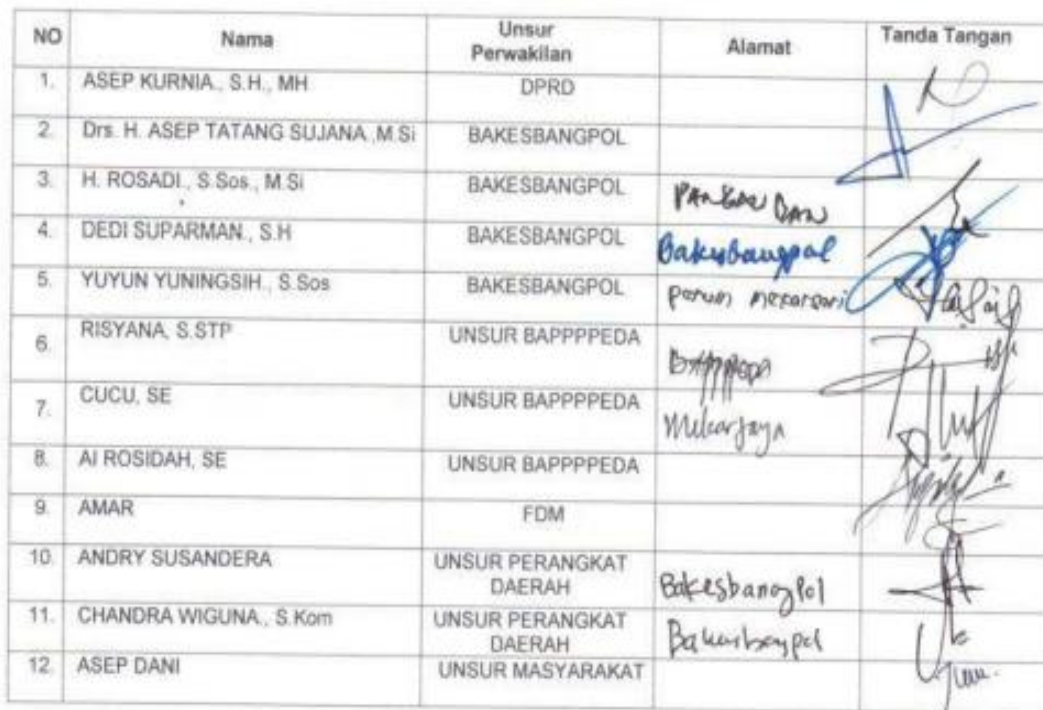 NO Nama Unsur Perwakilan Alamat Tanda Tangan
1. ASEP KURNIA., S.H., MH DPRD
2. Drs. H. ASEP TATANG SUJANA ,M.Si BAKESBANGPOL
3. H. ROSADI., S.Sos., M.Si BAKESBANGPOL
4. DEDI SUPARMAN., S.H BAKESBANGPOL Bakesbangpol
5. YUYUN YUNINGSIH., S.Sos BAKESBANGPOL perum mekarsari
6. RISYANA, S.STP UNSUR BAPPPPEDA
7. CUCU, SE UNSUR BAPPPPEDA Mekarjaya
8. AI ROSIDAH, SE UNSUR BAPPPPEDA
9. AMAR FDM
10. ANDRY SUSANDERA UNSUR PERANGKAT DAERAH BakesbangPol
11. CHANDRA WIGUNA., S.Kom UNSUR PERANGKAT DAERAH Bakesbangpol
12. ASEP DANI UNSUR MASYARAKAT